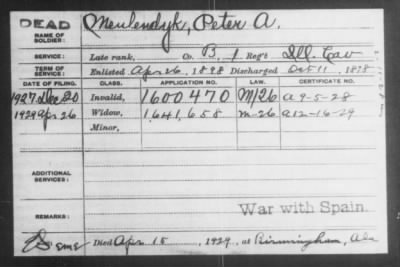 DEAD
NAME OF SOLDIER: Meulendyk, Peter A.
SERVICE: Late rank, Co. B, 1 Reg't Ill. Cav
TERM OF SERVICE: Enlisted Apr 26, 1898 Discharged Oct 11, 1898
DATE OF FILING. CLASS. APPLICATION NO. LAW. CERTIFICATE NO.
1927 Dec 20 Invalid, 1600470 M/26 A 9-5-28
1929 Apr 26 Widow, 1,641,658 M-26 A12-16-29
Minor,
ADDITIONAL SERVICES:
REMARKS: War with Spain.
Died Apr 15, 1929, at Birmingham, Ala